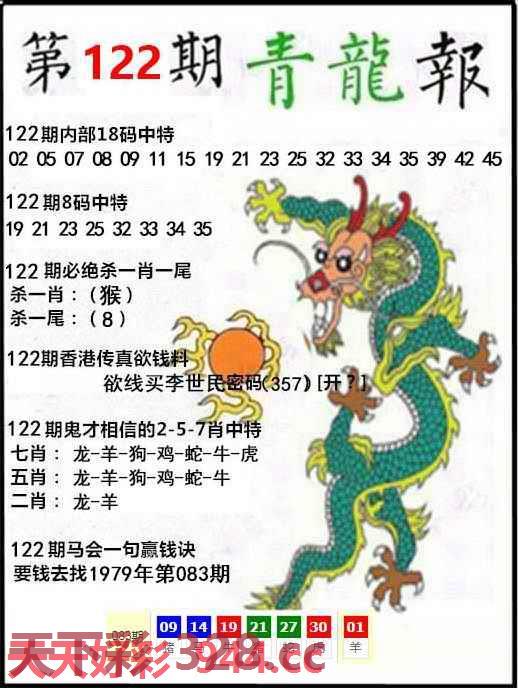 第122期青龍報
122期内部18码中特
02 05 07 08 09 11 15 19 21 23 25 32 33 34 35 39 42 45
122期8码中特
19 21 23 25 32 33 34 35
122期必绝杀一肖一尾
杀一肖：（猴）
杀一尾：（8）
122期香港传真欲钱料
欲线买李世民密码(357)[开？]
122期鬼才相信的2-5-7肖中特
七肖： 龙-羊-狗-鸡-蛇-牛-虎
五肖： 龙-羊-狗-鸡-蛇-牛
二肖： 龙-羊
122期马会一句赢钱诀
要钱去找1979年第083期
083期 09 14 19 21 27 30 01
猪 虎 羊
天天好彩3944.cc